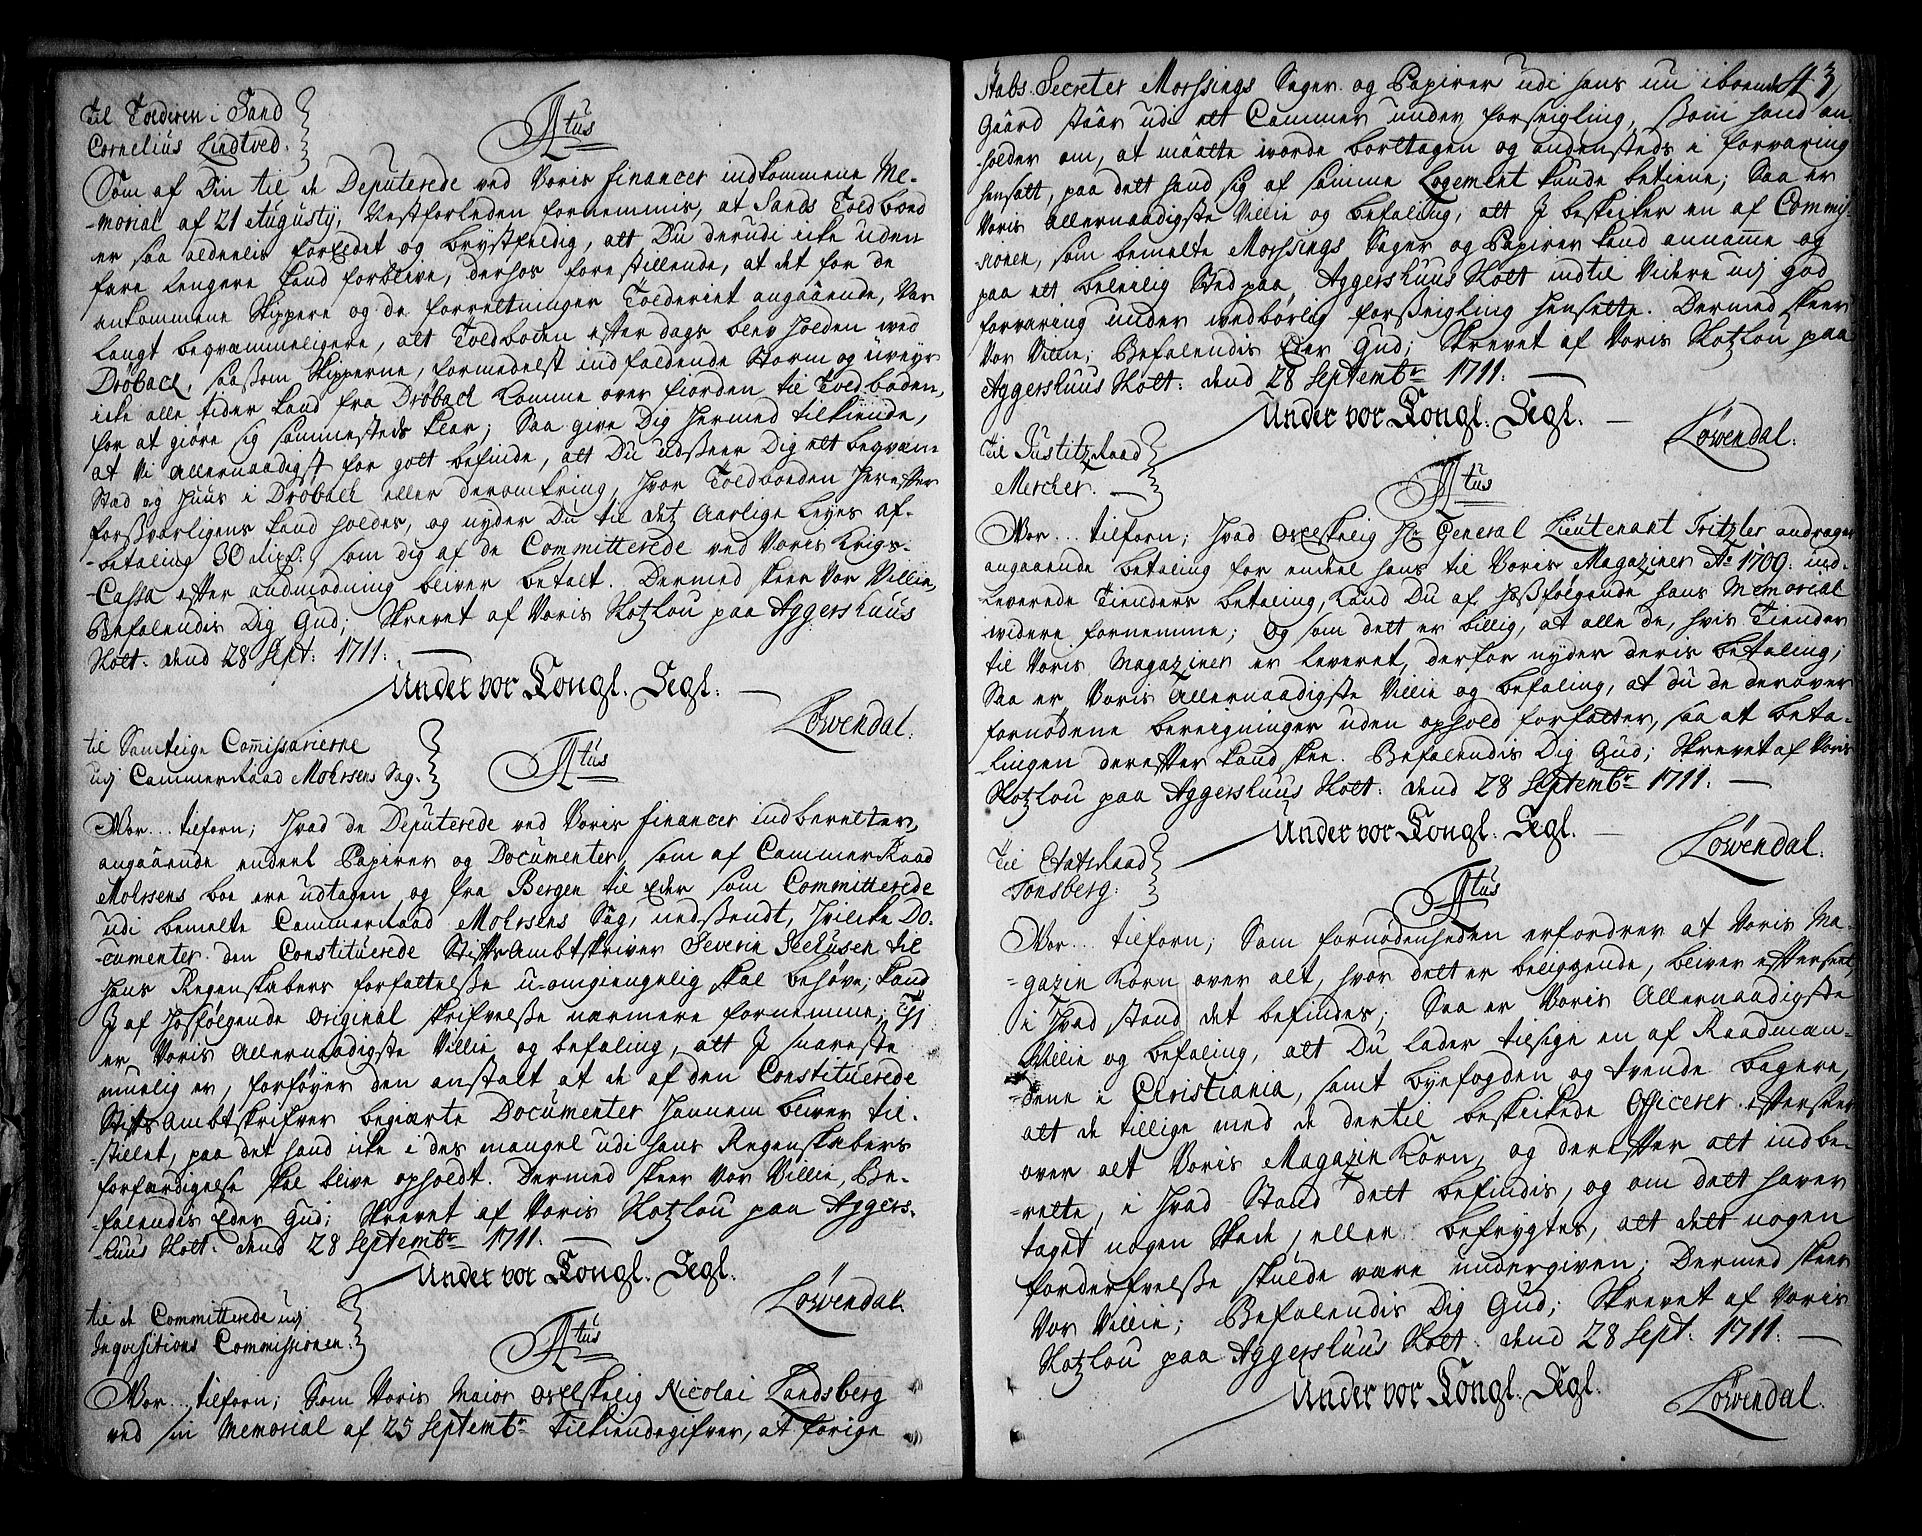 Til Tolderen i Sand
Cornelius Lindtved.
Atus
Som af Din til de Deputerede ved Voris financer indkommene Me-
-morial af 21 Augustj, Nestforleden fornemmis, at Sands Toldboed
er saa aldenlis forældet og brystfeldig, att Du derudi icke uden
fare lengere kand forblive, derhos forestillende, at det for de
ankommene Skippere og de forretninger Tolderiet angaaende, Var
langt beqvæmmeligere, att Toldboden efter dags blev holden wed
Drøbach, saasom Skipperne, formedelst indfaldende Storm og uveyr
icke alle tider kand fra Drøbach komme over fiorden til Toldboden,
for at giøre sig sammesteds klar; Saa give Dig hermed tilkiende,
at Vi Allernaadigst for gott befinde, att Du udsseer Dig ett beqvæm
Stæd og Huus i Drøbach eller deromkring, hvor Toldboeden herefter
forssvarligens kand holdes, og nyder Du til detz Aarlige Leyes af-
-betaling 30 rixd., som dig af de Committerede ved Voris Krigs-
-Cassa efter andmodning bliver betalt. Dermed skeer Vor Villie,
Befalendis Dig Gud; Skrevet af Voris Slotzlou paa Aggershuus
Slott. dend 28 Sept: 1711.
Under vor Kongl. Segl.
Løwendal.
til Samtlige Comissarierne
udj CammerRaad Mohrsens Sag.
Atus
Wor... tilforn; Hvad de Deputerede ved Voris financer indberetter,
angaaende endeel Papirer og Documenter, som af CammerRaad
Mohrsens boe ere udtagen, og fra Bergen til Eder som Committerede
udi bemelte CammerRaad Mohrsens Sag, nedssendt, hvilcke Do-
-cumenter den Constituerede StiftsAmbtskriver Severin Seehusen til
hans Regenskabers forfattelsse u-omgiengelig skal behøve, kand
J af hosfølgende original skrifvelsse nærmere fornemme; Thj
er Voris Allernaadigste Villie og befaling, att J snareste
muelig er, forføyer den anstalt at de af den Constituerede
StiftsAmbtskrifver begiærte Documenter hannem bliver til-
-stillet, paa det hand icke i des mangel udi hans Regenskabers
forfærdigelse skal blive opholdt. Dermed skeer vor Villie, Be-
-falendis Eder Gud; Skrevet af Voris Slotzlou paa Aggers-
-huus Slott. dend 28 Septembr 1711.
Under vor Kongl. Segl.
Løwendal.
til de Committerede udj
Inqvisitions Commissionen.
Atus
Wor... tilforn; Som Voris Maior oxelskelig Nicolai Landsberg
ved sin Memorial af 25 Septembr Tilkiendegifver, at forige
43
Stabs-Secreter Morssings Sager og Papirer udi hans nu iboende
Gaard staar udi ett Cammer under forseigling, ssom hand an-
-holder om, at maatte worde borttagen og andensteds i forvaring
hensatt, paa dett hand sig af samme Logement kunde betiene; Saa er
Voris allernaadigste Villie og befaling, att J beskicker en af Commis-
-sionen, som bemelte Morssings Sager og Papirer kand annamme og
paa ett beleilig Sted paa Aggershuus Slott indtil Videre udj god
forvaring under wedbørlig forsseigling hensette. Dermed skeer
Vor Villie; Befalendis Eder Gud; Skrevet af Voris Slotzlou paa
Aggershuus Slott. dend 28 Septembr 1711.
Under vor Kongl. Segl.
Løwendal.
Til JustitzRaad
Mercker.
Atus
Wor... tilforn; Hvad oxelskelig Hr General Lieutenant Tritzler andrager
angaaende betaling for endeel hans til Voris Magaziner Ao 1709 ind-
-leverede Tienders betaling, kand Du af hossfølgende hans Memorial
widere fornemme; Og som dett er billig, at alle de, hvis Tiender
til Voris Magaziner er leveret, derfor nyder deris betaling;
Saa er Voris Allernaadigste Villie og befaling, at du de derover
fornødene beregninger uden ophold forfatter, saa at beta-
-lingen derefter kand skee. Befalendis Dig Gud; Skrevet af Voris
Slotzlou paa Aggershuus Slott. dend 28 Septembr 1711.
Under vor Kongl. Segl.
Løwendal.
Til EtatsRaad
Tonsberg.
Atus
Wor... tilforn; Som fornødenheden erfordrer at Voris Ma-
-gazin Korn over alt, hvor dett er beliggende, bliver efterseet
i hvad stand det befindes; Saa er Voris Allernaadigste
Villie og befaling, att Du lader tilsige en af Raadmæn-
-dene i Christiania, samt byefogden og tvende bagere,
att de tillige med de dertil beskickede Officerer efterseer
over alt Voris Magazin Korn, og derefter alt indbe-
-rette, i hvad Stand dett befindis, og om dett haver
taget nogen Skade, eller befrygtes, att dett nogen
forderfvelsse skulde være undergiven; Dermed skeer
Vor Villie; Befalendis Dig Gud; Skrevet af Voris
Slotzlou paa Aggershuus Slott. dend 28 Sept. 1711.
Under vor Kongl. Segl.
Løwendal.